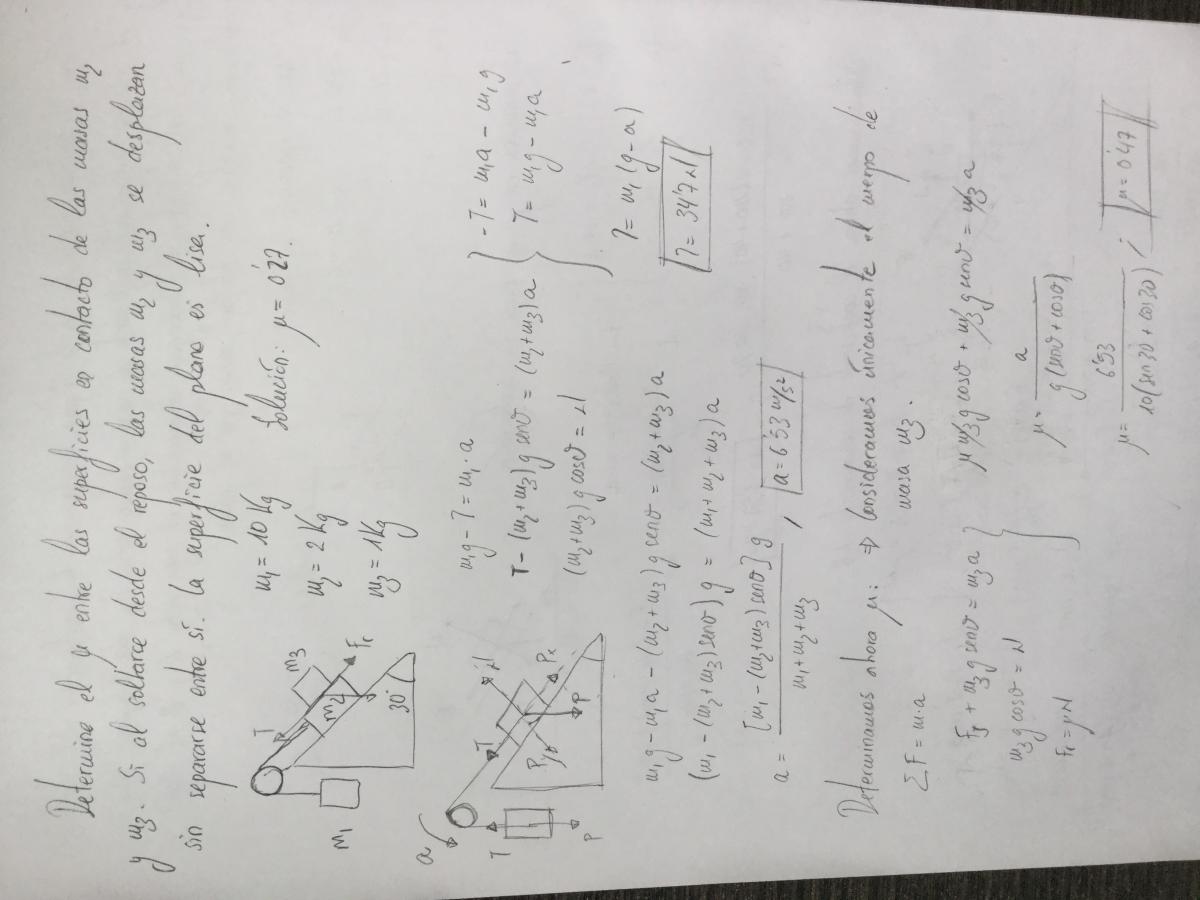 Determine el μ entre las superficies en contacto de las masas m₂
y m₃. Si al soltarse desde el reposo, las masas m₂ y m₃ se desplazan
sin separarse entre sí. La superficie del plano es lisa.
m₁ = 10 Kg
m₂ = 2 Kg
m₃ = 1 Kg
Solución: μ = 0'27.
T
m₃
m₂
Fr
30°
m₁
a
T
N
T
Py
Px
P
P
m₁g - T = m₁·a
T - (m₂+m₃)g senθ = (m₂+m₃)a
(m₂+m₃)g cosθ = N
-T = m₁a - m₁g
T = m₁g - m₁a
T = m₁(g-a)
T = 34'7 N
m₁g - m₁a - (m₂+m₃)g senθ = (m₂+m₃)a
(m₁ - (m₂+m₃)senθ)g = (m₁+m₂+m₃)a
a = [m₁ - (m₂+m₃)senθ]g / m₁+m₂+m₃ , a = 6'53 m/s²
Determinamos ahora μ: ⇒ Consideramos únicamente el cuerpo de
masa m₃.
ΣF = m·a
Fr + m₃g senθ = m₃a
m₃g cosθ = N
Fr = μN
μ m₃g cosθ + m₃g senθ = m₃a
μ = a / g(senθ + cosθ)
μ = 6'53 / 10(sen30 + cos30) ; μ = 0'47